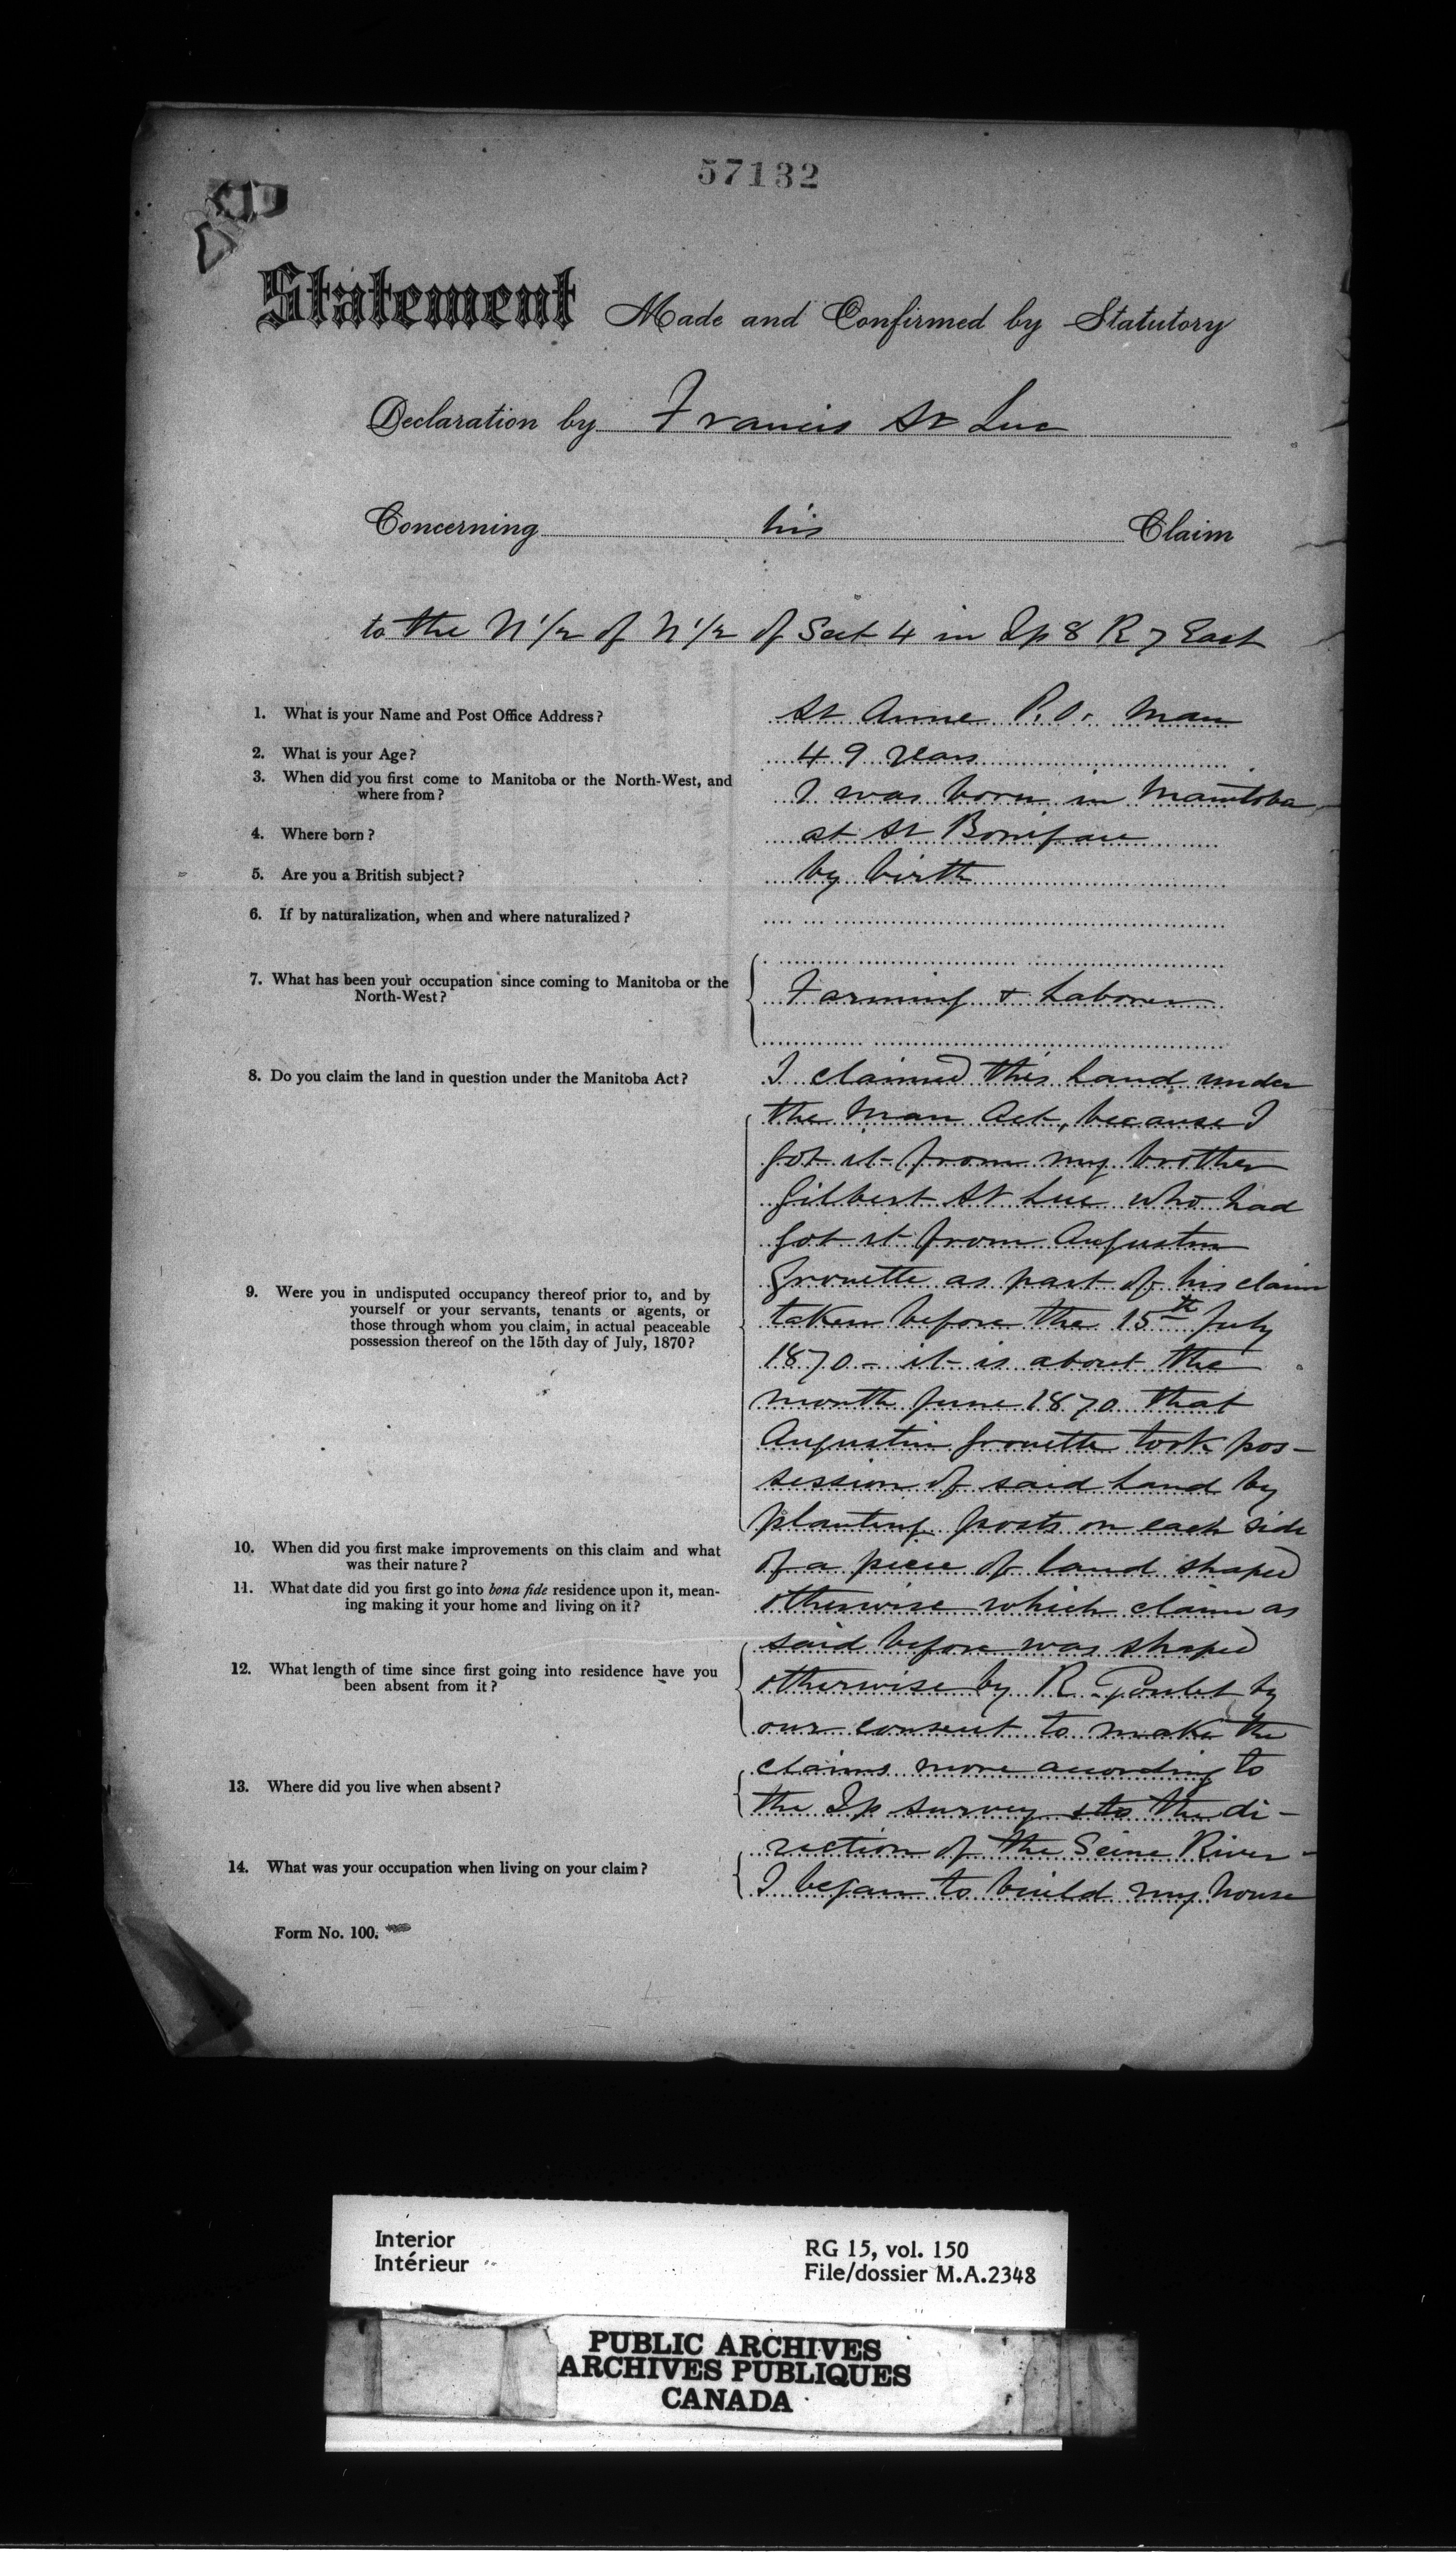 57132
Statement Made and Confirmed by Statutory
Declaration by Francis St Luc
Concerning his Claim
to the N 1/2 of N 1/2 of Sect 4 in Tp 8 R 7 East
1. What is your Name and Post Office Address? St Anne P.O. Man
2. What is your Age? 49 years
3. When did you first come to Manitoba or the North-West, and
where from? I was born in Manitoba
4. Where born? at St Boniface
5. Are you a British subject? by birth
6. If by naturalization, when and where naturalized?
7. What has been your occupation since coming to Manitoba or the
North-West? Farming & Laborer
8. Do you claim the land in question under the Manitoba Act? I claimed this land under
the Man Act, because I
got it from my brother
Gilbert St Luc who had
got it from Augustin
Grouette as part of his claim
9. Were you in undisputed occupancy thereof prior to, and by
yourself or your servants, tenants or agents, or
those through whom you claim, in actual peaceable
possession thereof on the 15th day of July, 1870?
taken before the 15th July
1870 - it is about the
month June 1870 that
Augustin Grouette took pos-
session of said land by
planting posts on each side
10. When did you first make improvements on this claim and what
was their nature?
of a piece of land shaped
11. What date did you first go into bona fide residence upon it, mean-
ing making it your home and living on it?
otherwise which claim as
said before was shaped
12. What length of time since first going into residence have you
been absent from it?
otherwise by R. Goulet by
our consent to make the
claims more according to
13. Where did you live when absent?
the Tp survey & to the di-
rection of the Seine River -
14. What was your occupation when living on your claim?
I began to build my house
Form No. 100.
Interior
Intérieur
RG 15, vol. 150
File/dossier M.A.2348
PUBLIC ARCHIVES
ARCHIVES PUBLIQUES
CANADA